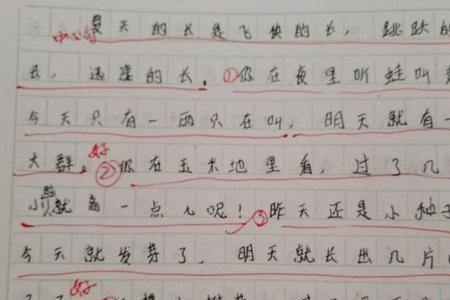 夏天的长是飞快的长，跳跃的
中心句
长，迅速的长。①你在夜里听蛙叫
今天只有一两只在叫，明天就有一
大群。好②你在玉米地里看，过了几
就高一点儿呢！③昨天还是小种子
今天就发芽了，明天就长出几片
好